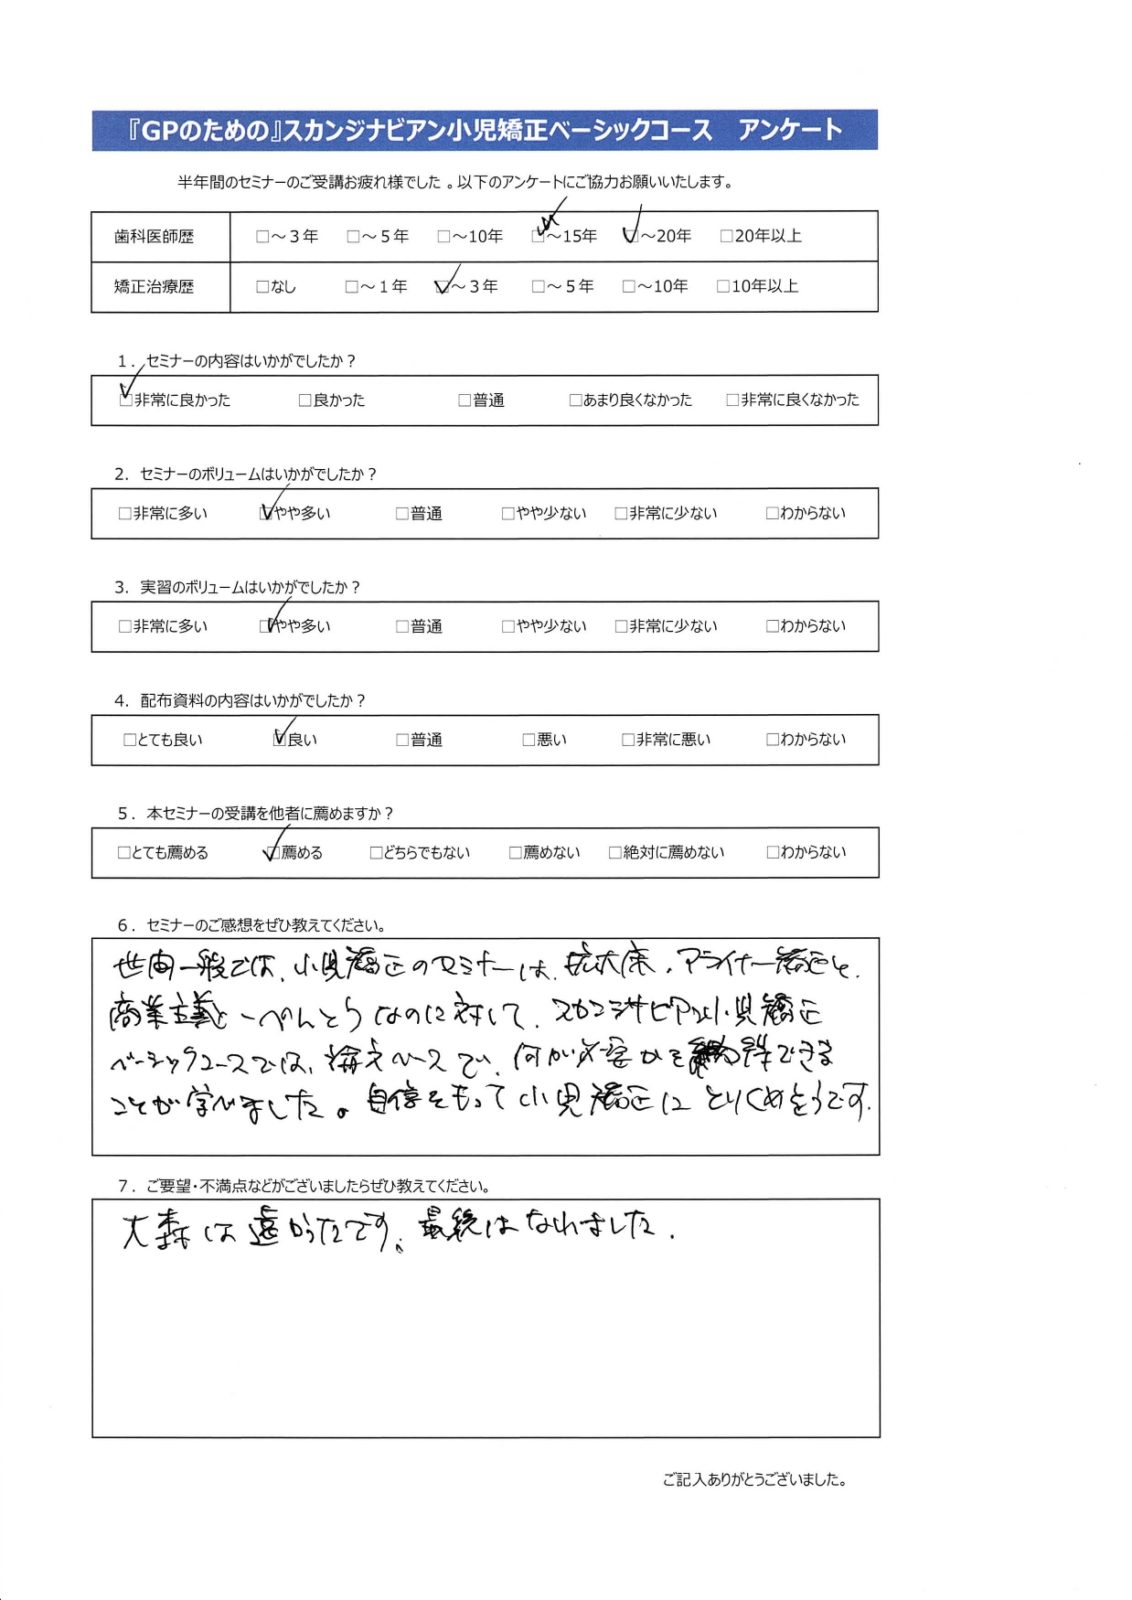 『GPのための』スカンジナビアン小児矯正ベーシックコース　アンケート
半年間のセミナーのご受講お疲れ様でした。以下のアンケートにご協力お願いいたします。
歯科医師歴　□～３年　□～５年　□～10年　□～15年　☑～20年　□20年以上
矯正治療歴　□なし　□～１年　☑～３年　□～５年　□～10年　□10年以上
１．セミナーの内容はいかがでしたか？
☑非常に良かった　□良かった　□普通　□あまり良くなかった　□非常に良くなかった
２．セミナーのボリュームはいかがでしたか？
□非常に多い　☑やや多い　□普通　□やや少ない　□非常に少ない　□わからない
３．実習のボリュームはいかがでしたか？
□非常に多い　☑やや多い　□普通　□やや少ない　□非常に少ない　□わからない
４．配布資料の内容はいかがでしたか？
□とても良い　☑良い　□普通　□悪い　□非常に悪い　□わからない
５．本セミナーの受講を他者に薦めますか？
□とても薦める　☑薦める　□どちらでもない　□薦めない　□絶対に薦めない　□わからない
６．セミナーのご感想をぜひ教えてください。
世間一般では、小児矯正のセミナーは、拡大床、アライナー矯正と、
商業主義いっぺんとうなのに対して、スカンジナビアン小児矯正
ベーシックコースでは、論文ベースで、何が必要かを できる
ことが学べました。自信をもって小児矯正にとりくめそうです。
７．ご要望・不満点などがございましたらぜひ教えてください。
大森は遠かったです、最後はなれました。
ご記入ありがとうございました。